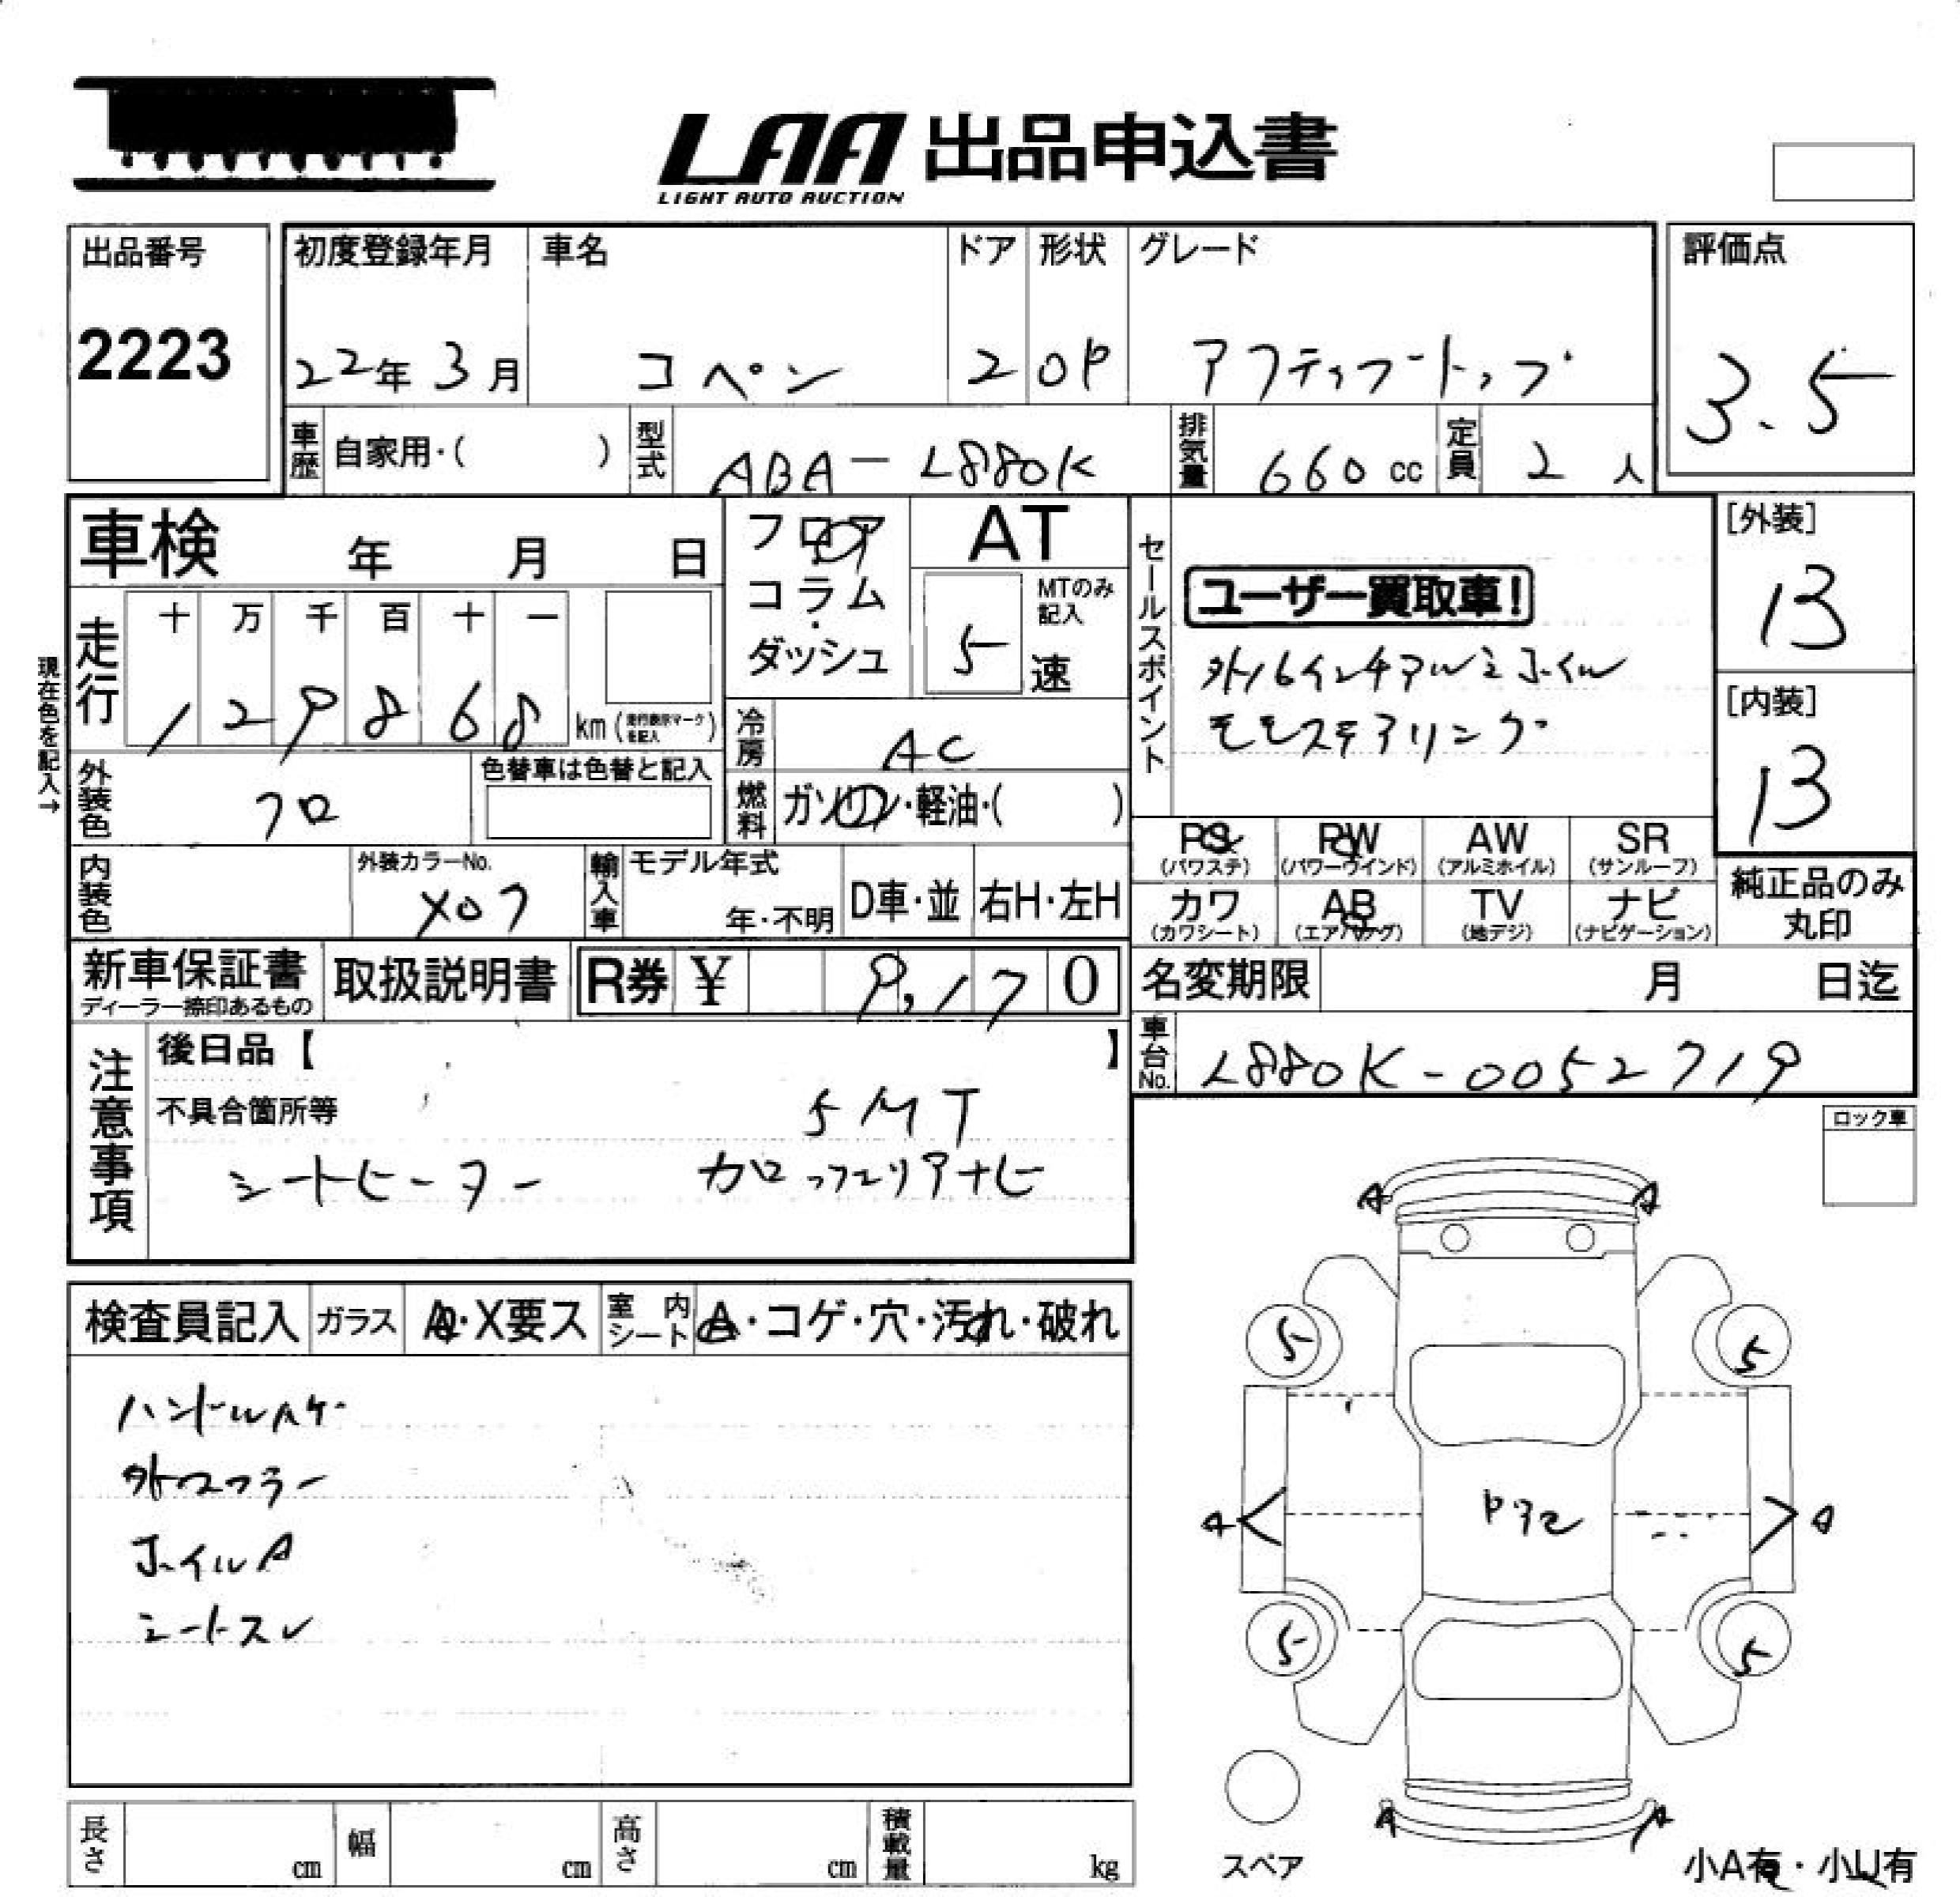 LAA 出品申込書
LIGHT AUTO AUCTION
出品番号
2223
初度登録年月
22年 3月
車名
コペン
ドア
2
形状
OP
グレード
アクティブートップ
評価点
3.5
車歴 自家用・( )
型式 ABA-L880K
排気量 660 cc
定員 2 人
車検 年 月 日
フロア・コラム・ダッシュ
AT
5 速 MTのみ記入
現在色を記入→
走行
十 万 千 百 十 一
1 2 9 8 6 8 km (走行表示マークを記入)
冷房 AC
外装色 クロ
色替車は色替と記入
燃料 ガソリン・軽油・( )
内装色
外装カラーNo.
X07
輸入車 モデル年式
年・不明
D車・並
右H・左H
セールスポイント
ユーザー買取車!
外16インチアルミホイル
モモステアリング
[外装]
13
[内装]
13
PS (パワステ)
PW (パワーウインド)
AW (アルミホイル)
SR (サンルーフ)
カワ (カワシート)
AB (エアバッグ)
TV (地デジ)
ナビ (ナビゲーション)
純正品のみ丸印
新車保証書
ディーラー捺印あるもの
取扱説明書
R券 ¥ 9,170
名変期限 月 日迄
車台No. L880K-0052719
注意事項
後日品【 】
不具合箇所等
5MT
シートヒーター カロッツェリアナビ
ロック車
検査員記入
ガラス A・X要ス
室内シート A・コゲ・穴・汚れ・破れ
ハンドルAケ
外マフラー
ホイルA
シートスレ
A A
5 5
A A
5 5
A A
スペア
小A有・小U有
長さ cm
幅 cm
高さ cm
積載量 kg